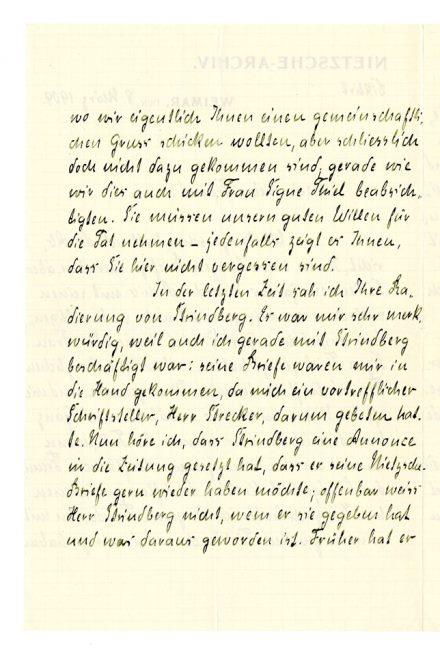 wo wir eigentlich Ihnen einen gemeinschaftli-
chen Gruss schicken wollten, aber schliesslich
doch nicht dazu gekommen sind, gerade wie
wir dies auch mit Frau Signe Thiel beabsich-
tigten. Sie müssen unsern guten Willen für
die Tat nehmen – jedenfalls zeigt es Ihnen,
dass Sie hier nicht vergessen sind.
In der letzten Zeit sah ich Ihre Ra-
dierung von Strindberg. Es war mir sehr merk-
würdig, weil auch ich gerade mit Strindberg
beschäftigt war: seine Briefe waren mir in
die Hand gekommen, da mich ein vortrefflicher
Schriftsteller, Herr Strecker, darum gebeten hat-
te. Nun höre ich, dass Strindberg eine Annonce
in die Zeitung gesetzt hat, dass er seine Nietzsche-
Briefe gern wieder haben möchte; offenbar weiss
Herr Strindberg nicht, wem er sie gegeben hat
und was daraus geworden ist. Früher hat er